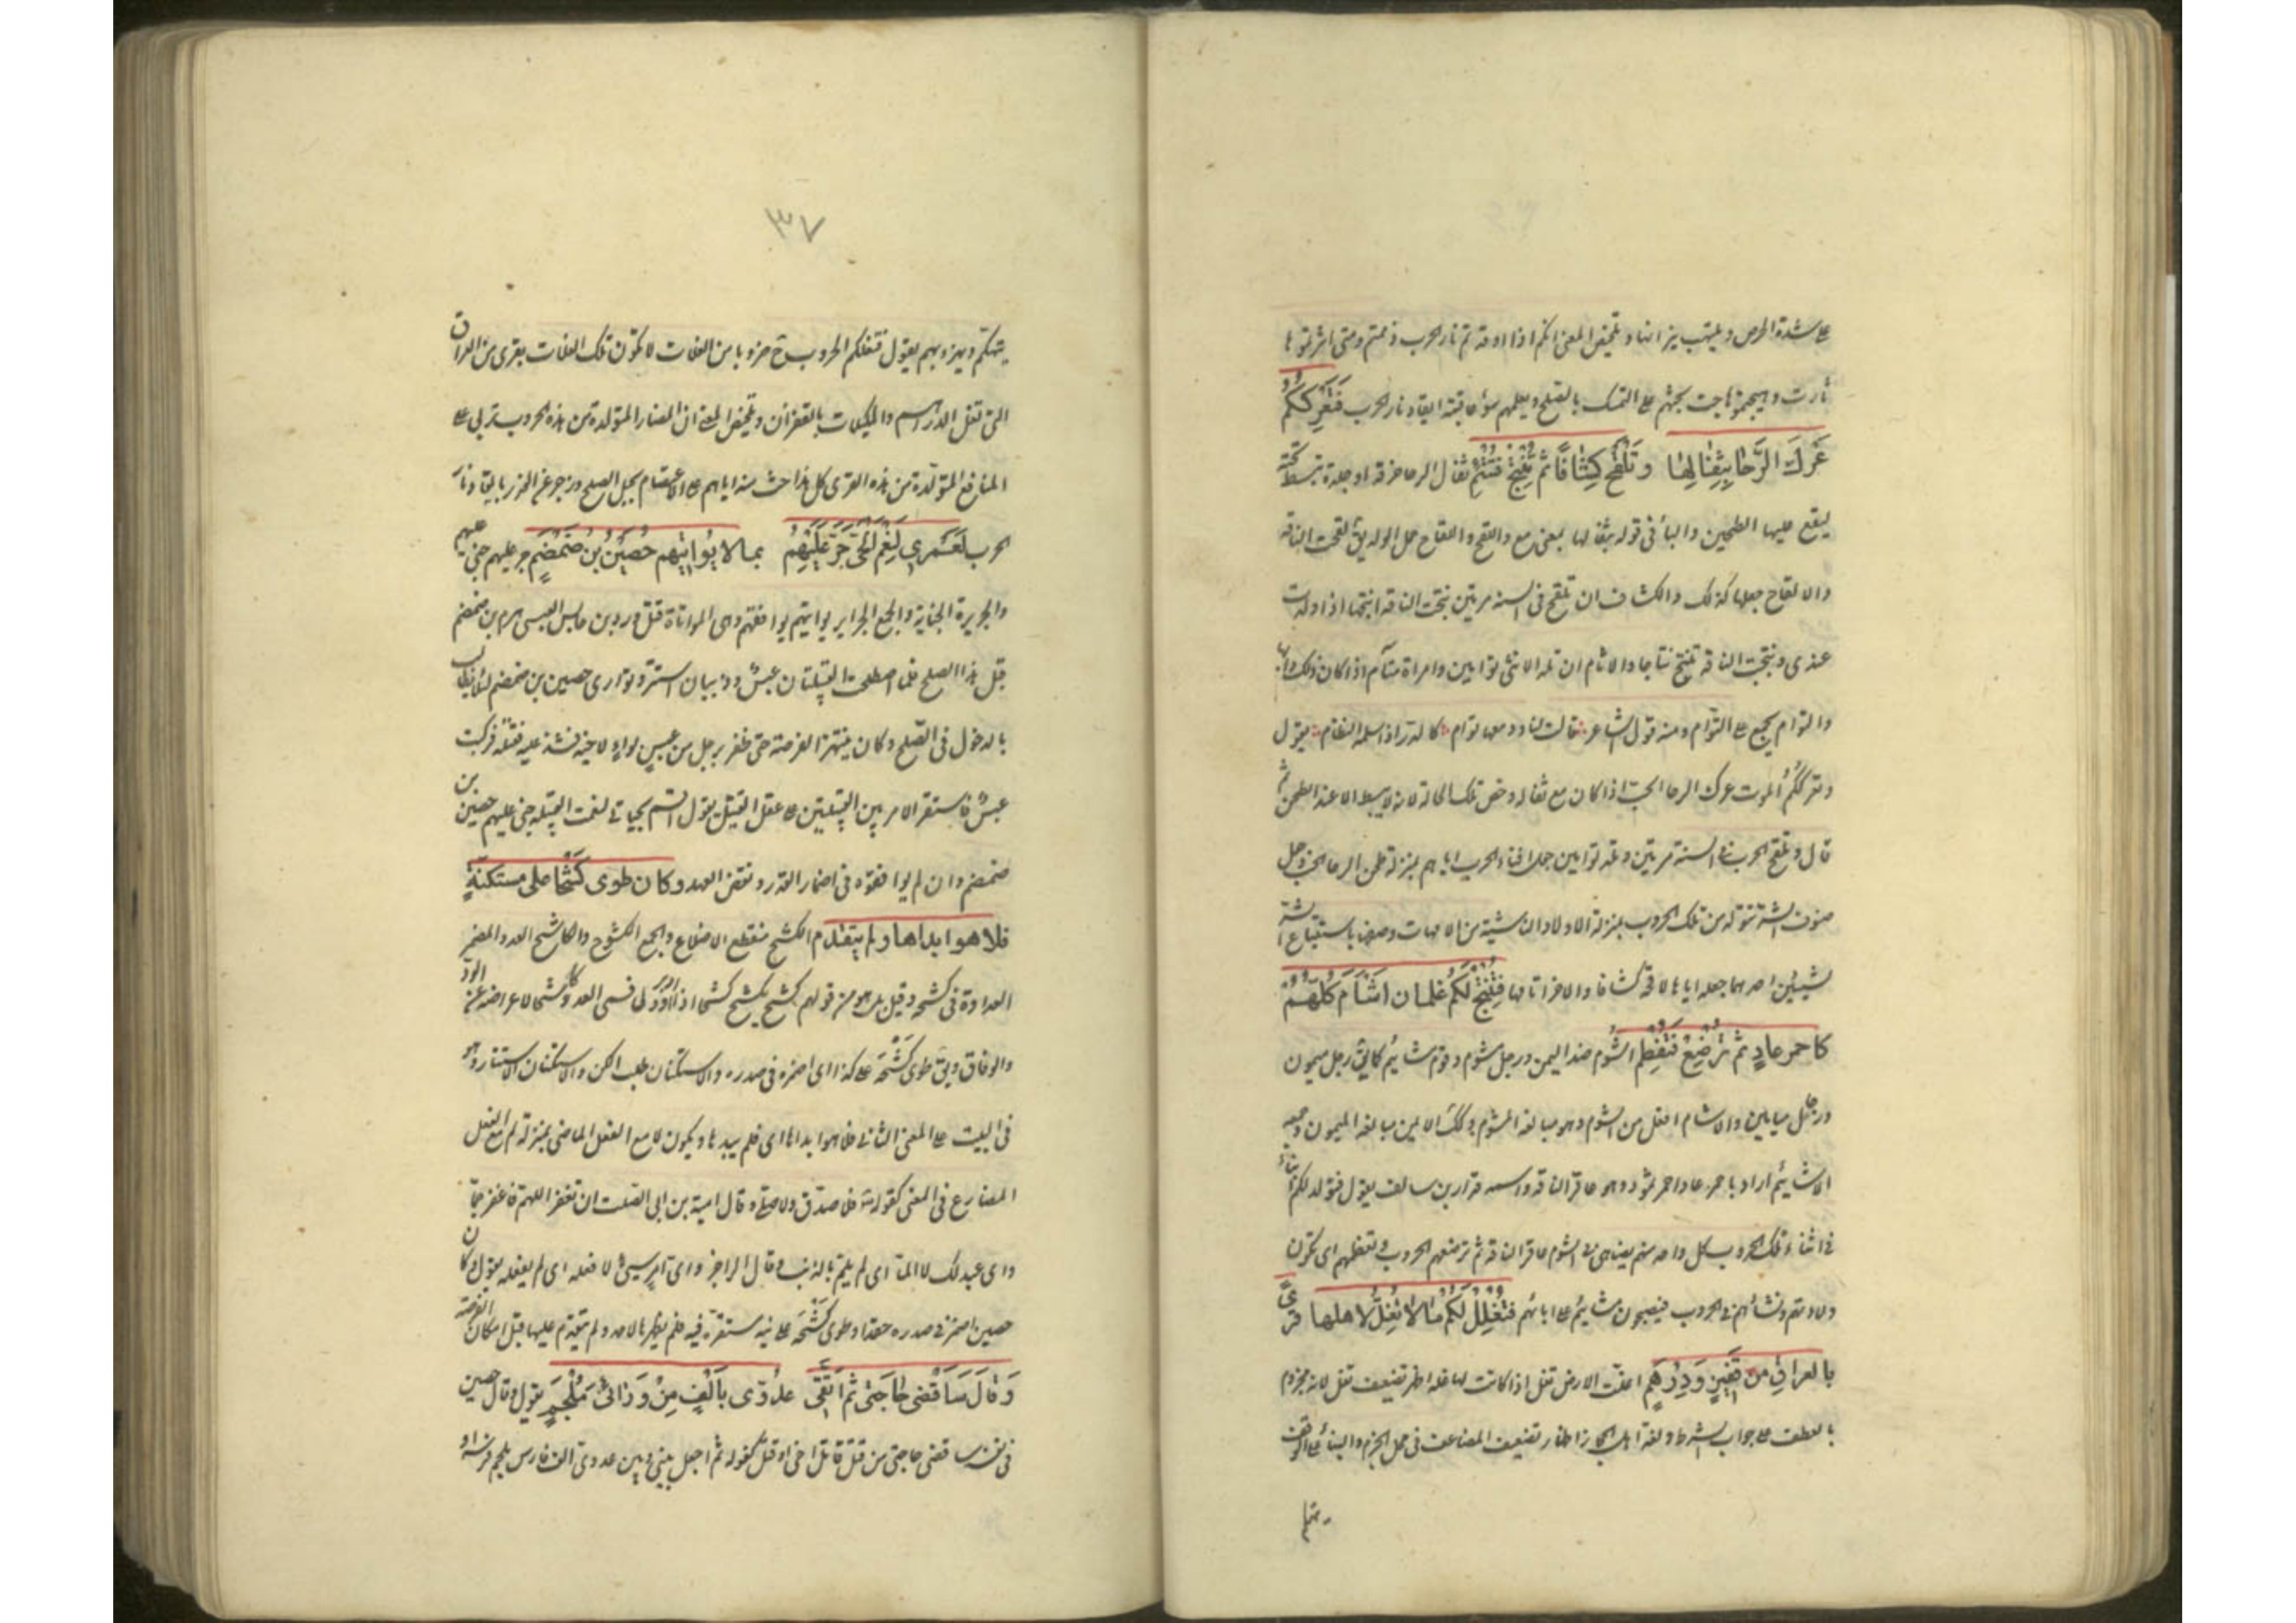 على شدة الحرص ويلتهب نيرانها وتلخيص المعنى انكم اذا اوقدتم نار الحرب ذممتم ومتى اثرتموها
ثارت وهيجتموها هاجت يحثهم على التمسك بالصلح ويعلمهم سوء عاقبة ايقاد نار الحرب فَتَعْرُكْكُمُ
عَرْكَ الرَّحَا بِثِفَالِهَا وَتَلْقَحْ كِشَافًا ثُمَّ تُنْتَجْ فَتُتْئِمِ ثفال الرحا خرقة او جلدة تبسط تحته
ليقع عليها الطحين والباء في قوله بثفالها بمعنى مع واللقح واللقاح حمل الولد يق لقحت الناقة
والالقاح جعلها كذلك والكشاف ان تلقح في السنة مرتين نتجت الناقة انتجها اذا ولدت
عندى ونتجت الناقة تنتج نتاجا والاتئام ان تلد الانثى توأمين وامراة متآم اذا كان ذلك دأبها
والتوام يجمع على التؤام ومنه قول الشاعر قالت لنا ودمعها تؤام كالدر اذ اسلمه النظام يقول
وتعرككم الموت عرك الرحا الحب اذا كان مع ثفاله وخص تلك الحالة لانه لا يبسط الا عند الطحن ثم
قال وتلقح الحرب في السنة مرتين وتلد توامين جعل افناء الحرب اياهم بمنزلة طحن الرحا الحب وجعل
صنوف الشر تتولد من تلك الحروب بمنزلة الاولاد الناشية من الامهات وصفها باستتباع الشر
شيئين احدهما جعله اياها لاقحة كشافا والاخر اتآمها فَتُنْتَجْ لَكُمْ غِلْمَانَ اَشْأَمَ كُلُّهُمْ
كاحمر عادٍ ثم تُرْضِعْ فَتَفْطِمِ الشوم ضد اليمن ورجل مشوم وقوم مشائيم كما يق رجل ميمون
ورجال ميامين والاشام افعل من الشوم وهو مبالغة المشوم وكك الايمن مبالغة الميمون وجمعه
الاشائم اراد باحمر عاد احمر ثمود وهو عاقر الناقة واسمه قدار بن سالف يقول فتولد لكم ابناء
في اثناء تلك الحروب كل واحد منهم يضاهى في الشوم عاقر الناقة ثم ترضعهم الحروب وتفطمهم اى تكون
ولادتهم ونشأتهم في الحروب فيصبحون مشائيم على ابائهم فَتُغْلِلْ لَكُمْ مَا لَا تُغِلُّ لاهلها قُرًى
بالعراقِ من قَفِيزٍ وَدِرْهَمِ اغلت الارض تغل اذا كانت لها غلة اظهر تضعيف تغل لانه مجزوم
بالعطف على جواب الشرط ولغة اهل الحجاز اظهار تضعيف المضاعف في محل الجزم والبناء على الوقف
يتهكم
٣٧
يتهكم ويهزء بهم يقول فتغلكم الحروب ح ضروبا من الغلات لا تكون تلك الغلات بقرى من العراق
التى تغل الدراهم والمكيلات بالقفزان وتلخيص المعنى ان المضار المتولدة من هذه الحروب تربى على
المنافع المتولدة من هذه القرى كل هذا حث منه اياهم على الاعتصام بحبل الصلح وزجر عن الغدر بايقاد نار
الحرب لَعَمْرِي لَنِعْمَ الْحَيُّ جَرَّ عَلَيْهِمُ بما لا يُوَاتِيهِم حُصَيْنُ بْنُ ضَمْضَمِ جر عليهم جنى عليهم
والجريرة الجناية والجمع الجراير يواتيهم يوافقهم وهى المواتاة قتل ورد بن حابس العبسى هرم بن ضمضم
قبل هذا الصلح فلما اصطلحت القبيلتان عبس وذبيان استتر وتوارى حصين بن ضمضم لئلا يطالب
بالدخول في الصلح وكان ينتهز الفرصة حتى ظفر برجل من عبس بواء لاخيه فشد عليه فقتله فركبت
عبس فاستقر الامر بين القبيلتين على عقل القتيل يقول اقسم بحياتى لنعمت القبيلة جنى عليهم حصين بن
ضمضم وان لم يوافقوه في اضمار الغدر ونقض العهد وكان طوى كَشْحًا على مستكنةٍ
فلا هو ابداها ولم يتقدم الكشح منقطع الاضلاع والجمع الكشوح والكاشح العدو المضمر
العداوة في كشحه وقيل بل هو من قولهم كشح يكشح كشحا اذا ادبر وولى فسمى العدو كاشحا لاعراضه عن الود
والوفاق ويق طوى كَشْحَهُ على كذا اى اضمره في صدره والاستكنان طلب الكن والاستكنان الاستتار وهو
في البيت على المعنى الثانى فلا هو ابداها اى فلم يبدها ويكون لا مع الفعل الماضى بمنزلة لم مع الفعل
المضارع في المعنى كقوله تع فلا صدق ولا صلى وقال امية بن ابى الصلت ان تغفر اللهم فاغفر جما
واى عبد لك لا الما اى لم يلم بالذنب وقال الراجز واى امر سيئ لا فعله اى لم يفعله يقول وكان
حصين اضمر في صدره حقدا وطوى كَشْحَهُ على نية مستترة فيه فلم يظهرها لاحد ولم يتقدم عليها قبل امكان الفرصة
وَقَالَ سَاَقْضِى حَاجَتِى ثُمَّ اَتَّقِى عدُوِّى بِاَلْفٍ مِنْ وَرَائِىَ مُلْجَمِ يقول وقال حصين
في نفسه ساقضى حاجتى من قتل قاتل اخى او قتل كفو له ثم اجعل بينى وبين عدوى الف فارس ملجم فرسه او